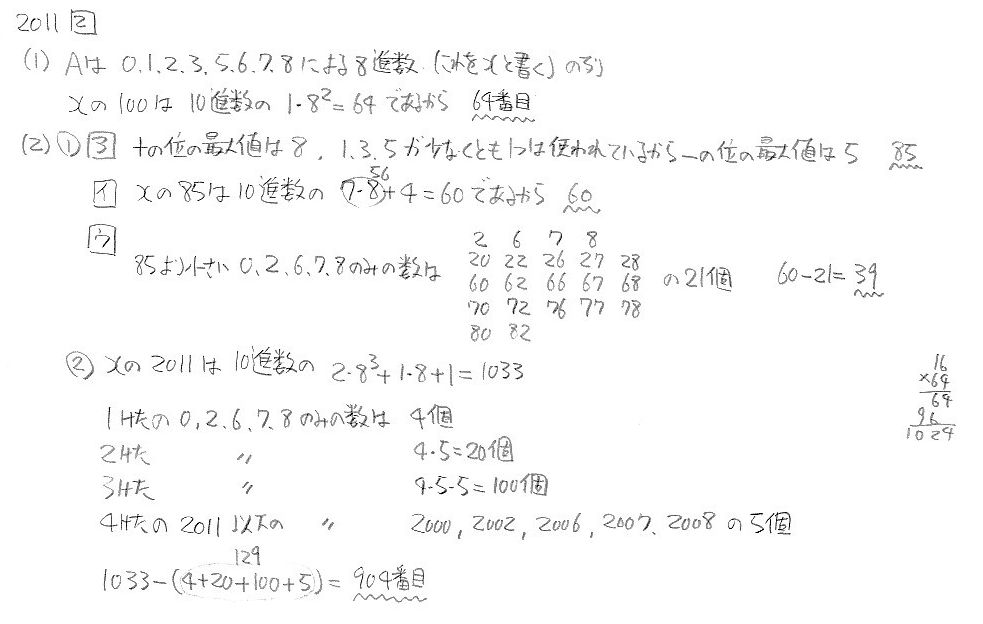 2011 2
(1) Aは 0.1.2.3.5.6.7.8による8進数 (これをxと書く) の列
xの100は10進数の 1・8²=64 であるから 64番目
(2) ① ア 十の位の最大値は8, 1.3.5が少なくとも1つは使われているから一の位の最大値は5 85
イ xの85は10進数の 7・8+4=60であるから 60
56
ウ 2 6 7 8
85より小さい 0,2,6,7,8のみの数は 20 22 26 27 28 の21個 60-21=39
60 62 66 67 68
70 72 76 77 78
80 82
② xの2011は10進数の 2・8³+1・8+1=1033
1けたの 0,2,6,7,8のみの数は 4個
2けた 〃 4・5=20個
3けた 〃 4・5・5=100個
4けたの 2011以下の 〃 2000, 2002, 2006, 2007, 2008 の5個
129
1033-(4+20+100+5)=904番目
16
×64
64
96
1024